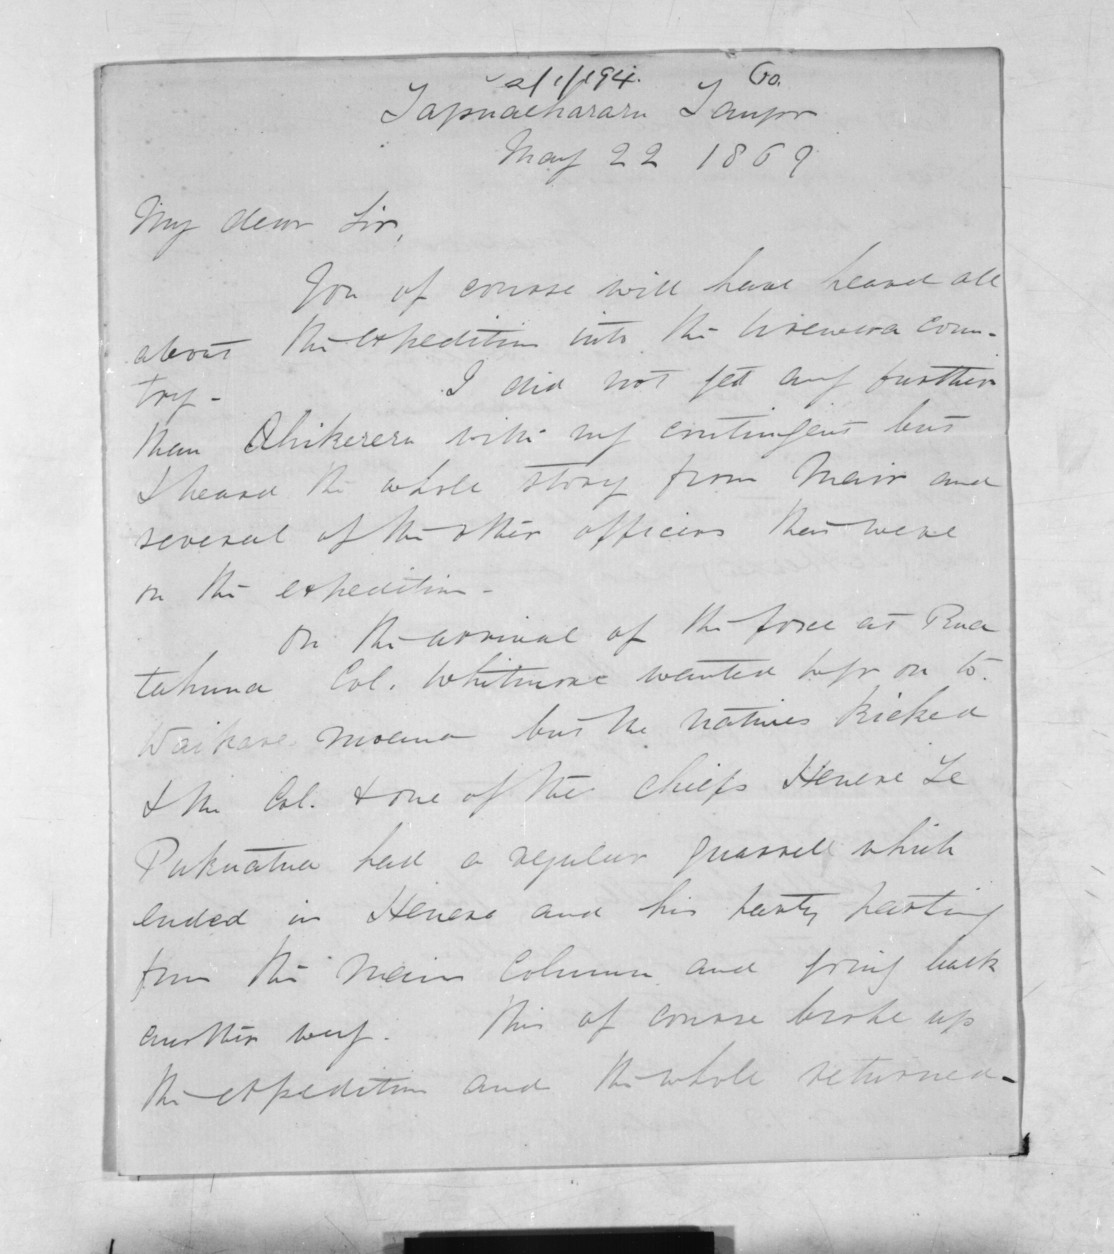 a/1/194. Go.
Tapuaeharuru Taupo
May 22 1869
My dear Sir,
You of course will have heard all
about the expedition into the Urewera coun-
try - I did not get any further
than Ahikereru with my contingent but
I heard the whole story from Mair and
several of the other officers that were
on the expedition -
On the arrival of the force at Rua
tahuna Col. Whitmore wanted to go on to
Waikare moana but the natives kicked
& the Col. & one of the chiefs Henere Te
Pukuatua had a regular quarrell which
ended in Henere and his party parting
from the main column and going back
another way. This of course broke up
the expedition and the whole returned -